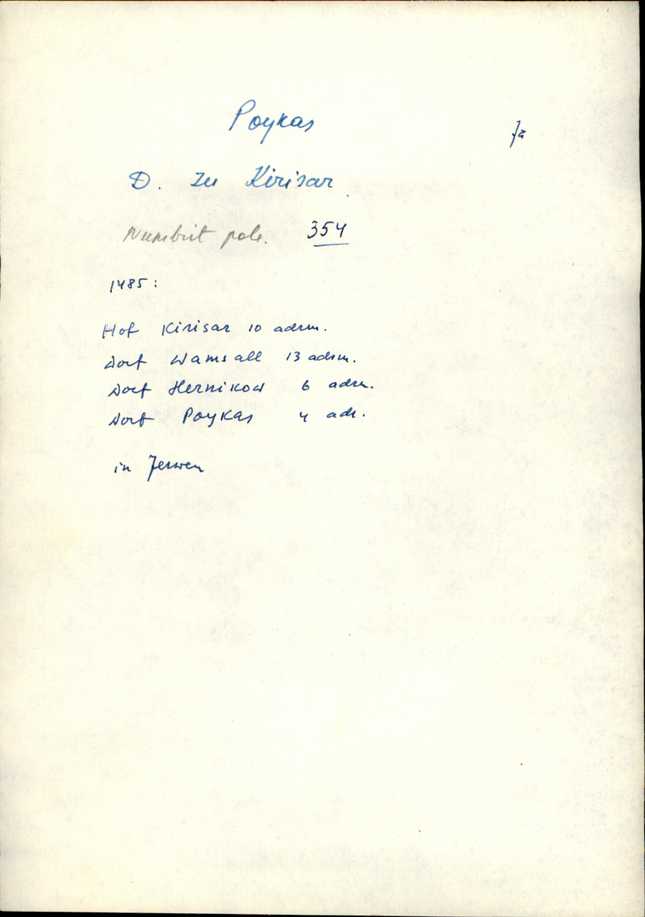 Poykas
Ja
D. zu Kirisar
Numbrit pole. 354
1485:
Hof Kirisar 10 adrm.
Dorf Wamsall 13 adrm.
Dorf Hernikow 6 adrm.
Dorf Poykas 4 adr.
in Jerwen